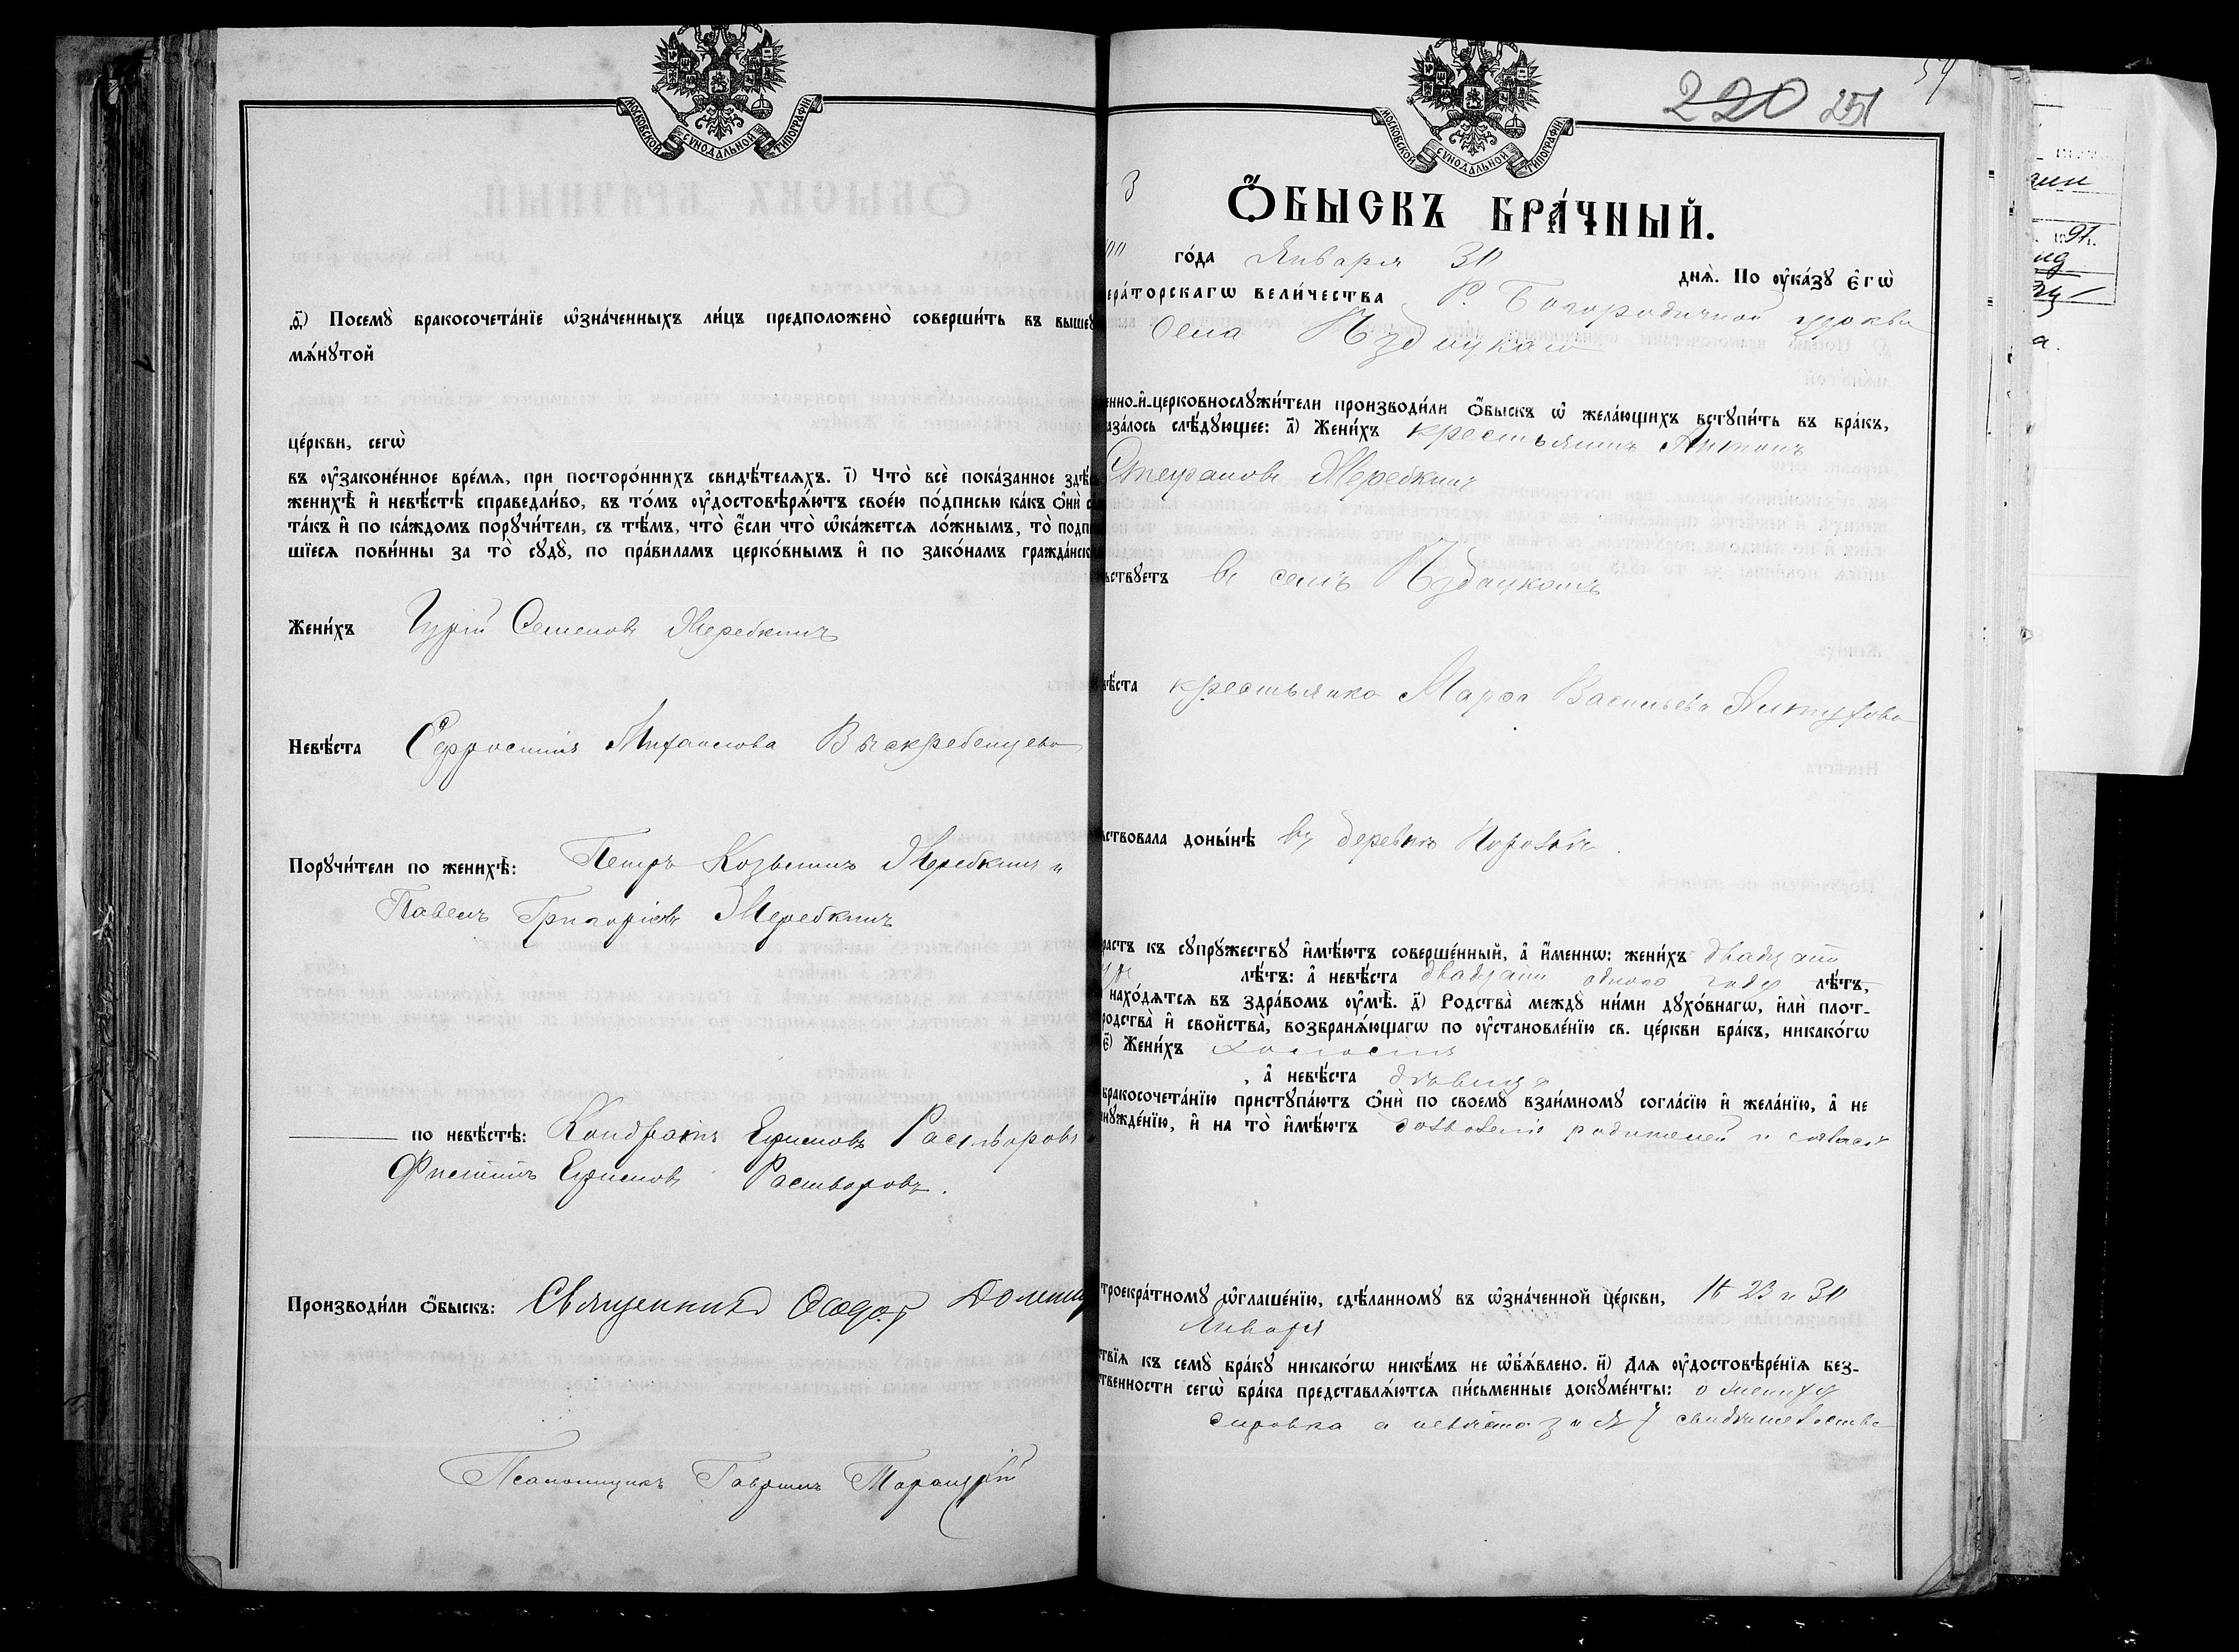 МОСКОВСКОЙ СѴНОДАЛЬНОЙ ТИПОГРАФІИ
д҃і) Посемꙋ̀ бракосочета́нїе ѡ҆зна́ченныхъ ли́цъ предположено̀ соверши́ть въ выше
мѧ́нꙋтой
це́ркви, сегѡ̀
въ ᲂу҆зако́нённое вре́мѧ, при посторо́ннихъ свидѣ́телѧхъ. і҃) Что̀ всѐ пока́занное здѣ
женихѣ̀ и҆ невѣ́стѣ справедли́во, въ то́мъ ᲂу҆достовѣрѧ́ютъ своє́ю по́дписью ка́къ ѻ҆нѝ с
та́къ и҆ по ка́ждомъ порꙋчи́тели, съ тѣ́мъ, что̀ є҆́сли что̀ ѡ҆ка́жетсѧ ло́жнымъ, то̀ подп
шїесѧ пови́нны за то̀ сꙋдꙋ̀, по пра́виламъ церко́внымъ и҆ по зако́намъ гражда́нск
Жени́хъ Гурій Семеновъ Жеребкинъ
Невѣ́ста Ефросинія Михайлова Выскребенцева
Порꙋчи́тели по женихѣ̀: Петръ Козьминъ Жеребкинъ и
Павелъ Григорьевъ Жеребкинъ
по невѣ́стѣ: Кондратъ Ефимовъ Растворовъ
Ефимовъ Растворовъ.
Производи́ли ѻ҆́быскъ: Священникъ Ѳеодоръ
Псаломщикъ Гавріилъ
МОСКОВСКОЙ СѴНОДАЛЬНОЙ ТИПОГРАФІИ
220 251
54
3
Ѻ҆́БЫСКЪ БРА́ЧНЫЙ.
го́да Января 30 днѧ̀. По ᲂу҆ка́зꙋ є҆гѡ̀
ера́торскагѡ вели́чества Р. Богородичной церкви
Села
енно-и҆-церковнослꙋжи́тели производи́ли ѻ҆́быскъ ѡ҆ жела́ющихъ встꙋпи́ть въ бра́къ,
аза́лось слѣ́дꙋющее: а҃) Жени́хъ крестьянинъ Антонъ
Стефановъ Жеребкинъ
ьствꙋетъ въ селѣ
вѣ́ста крестьянка Марѳа Васильева
ьствовала доны́нѣ въ деревнѣ
растъ къ сꙋпрꙋ́жествꙋ и҆мѣ́ютъ соверше́нный, а҆ и҆́меннѡ: жени́хъ двадцати
лѣ́тъ: а҆ невѣ́ста двадцати одного году лѣ́тъ,
нахо́дѧтсѧ въ здра́вомъ ᲂу҆мѣ̀. д҃) Родства̀ междꙋ̀ ни́ми дꙋхо́внагѡ, и҆лѝ плот-
родства̀ и҆ сво́йства̀, возбранѧ́ющагѡ по ᲂу҆становле́нїю св. це́ркви бра́къ, никако́гѡ
є҃) Жени́хъ холостъ
, а҆ невѣ́ста дѣвица
бракосочета́нїю пристꙋпа́ютъ ѻ҆нѝ по своемꙋ̀ взаи́мномꙋ согла́сїю и҆ жела́нїю, а҆ не
нꙋжде́нїю, и҆ на то̀ и҆мѣ́ютъ дозволеніе родителей и согласіе
троекра́тномꙋ ѡ҆глаше́нїю, сдѣ́ланномꙋ въ ѡ҆зна́ченной це́ркви, 16 23 и 30
Января
твїѧ къ семꙋ̀ бра́кꙋ никако́гѡ никѣ́мъ не ѡ҆б̾ѧ́влено. и҃) Длѧ ᲂу҆достовѣре́нїѧ без-
твенности сегѡ̀ бра́ка представлѧ́ютсѧ пи́сьменные докꙋме́нты: о женихѣ
справка о невѣстѣ за № 7 свидѣтельство